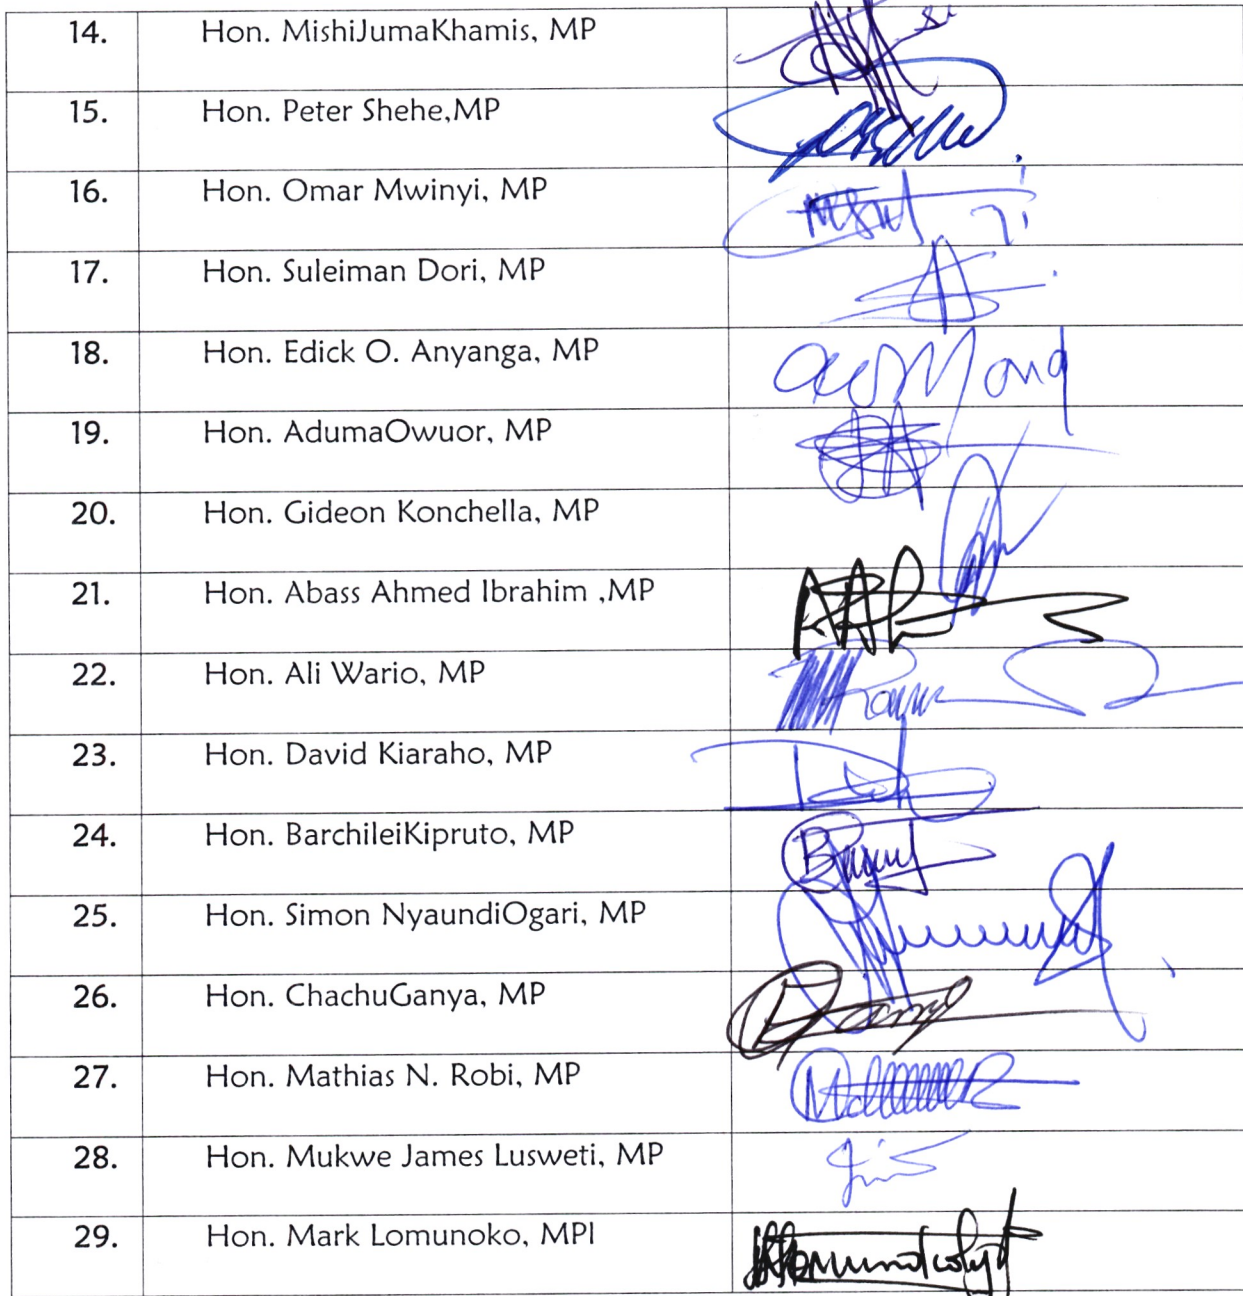 14. Hon. MishiJumaKhamis, MP
15. Hon. Peter Shehe,MP
16. Hon. Omar Mwinyi, MP
17. Hon. Suleiman Dori, MP
18. Hon. Edick O. Anyanga, MP
19. Hon. AdumaOwuor, MP
20. Hon. Gideon Konchella, MP
21. Hon. Abass Ahmed Ibrahim ,MP
22. Hon. Ali Wario, MP
23. Hon. David Kiaraho, MP
24. Hon. BarchileiKipruto, MP
25. Hon. Simon NyaundiOgari, MP
26. Hon. ChachuGanya, MP
27. Hon. Mathias N. Robi, MP
28. Hon. Mukwe James Lusweti, MP
29. Hon. Mark Lomunoko, MPI